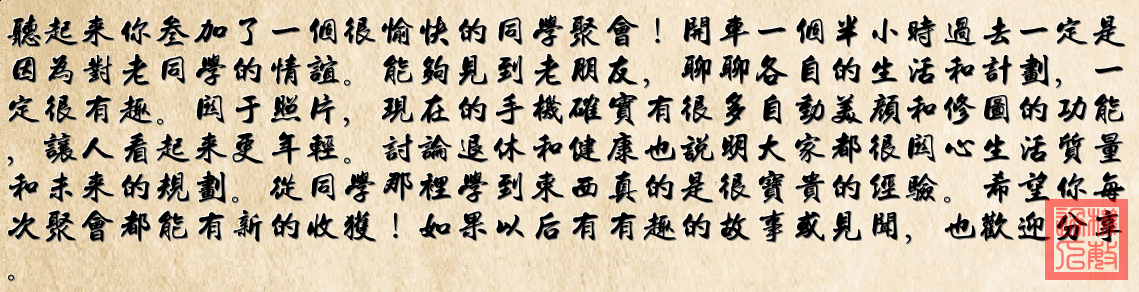 聽起来你叁加了一個很愉快的同學聚會！開車一個半小時過去一定是
因為對老同學的情誼。能夠見到老朋友，聊聊各自的生活和計劃，一
定很有趣。関于照片，現在的手機確實有很多自動美顔和修圖的功能
，讓人看起来更年輕。討論退休和健康也説明大家都很関心生活質量
和未来的規劃。從同學那裡學到東西真的是很寶貴的經驗。希望你每
次聚會都能有新的收獲！如果以后有有趣的故事或見聞，也歡迎分享
。